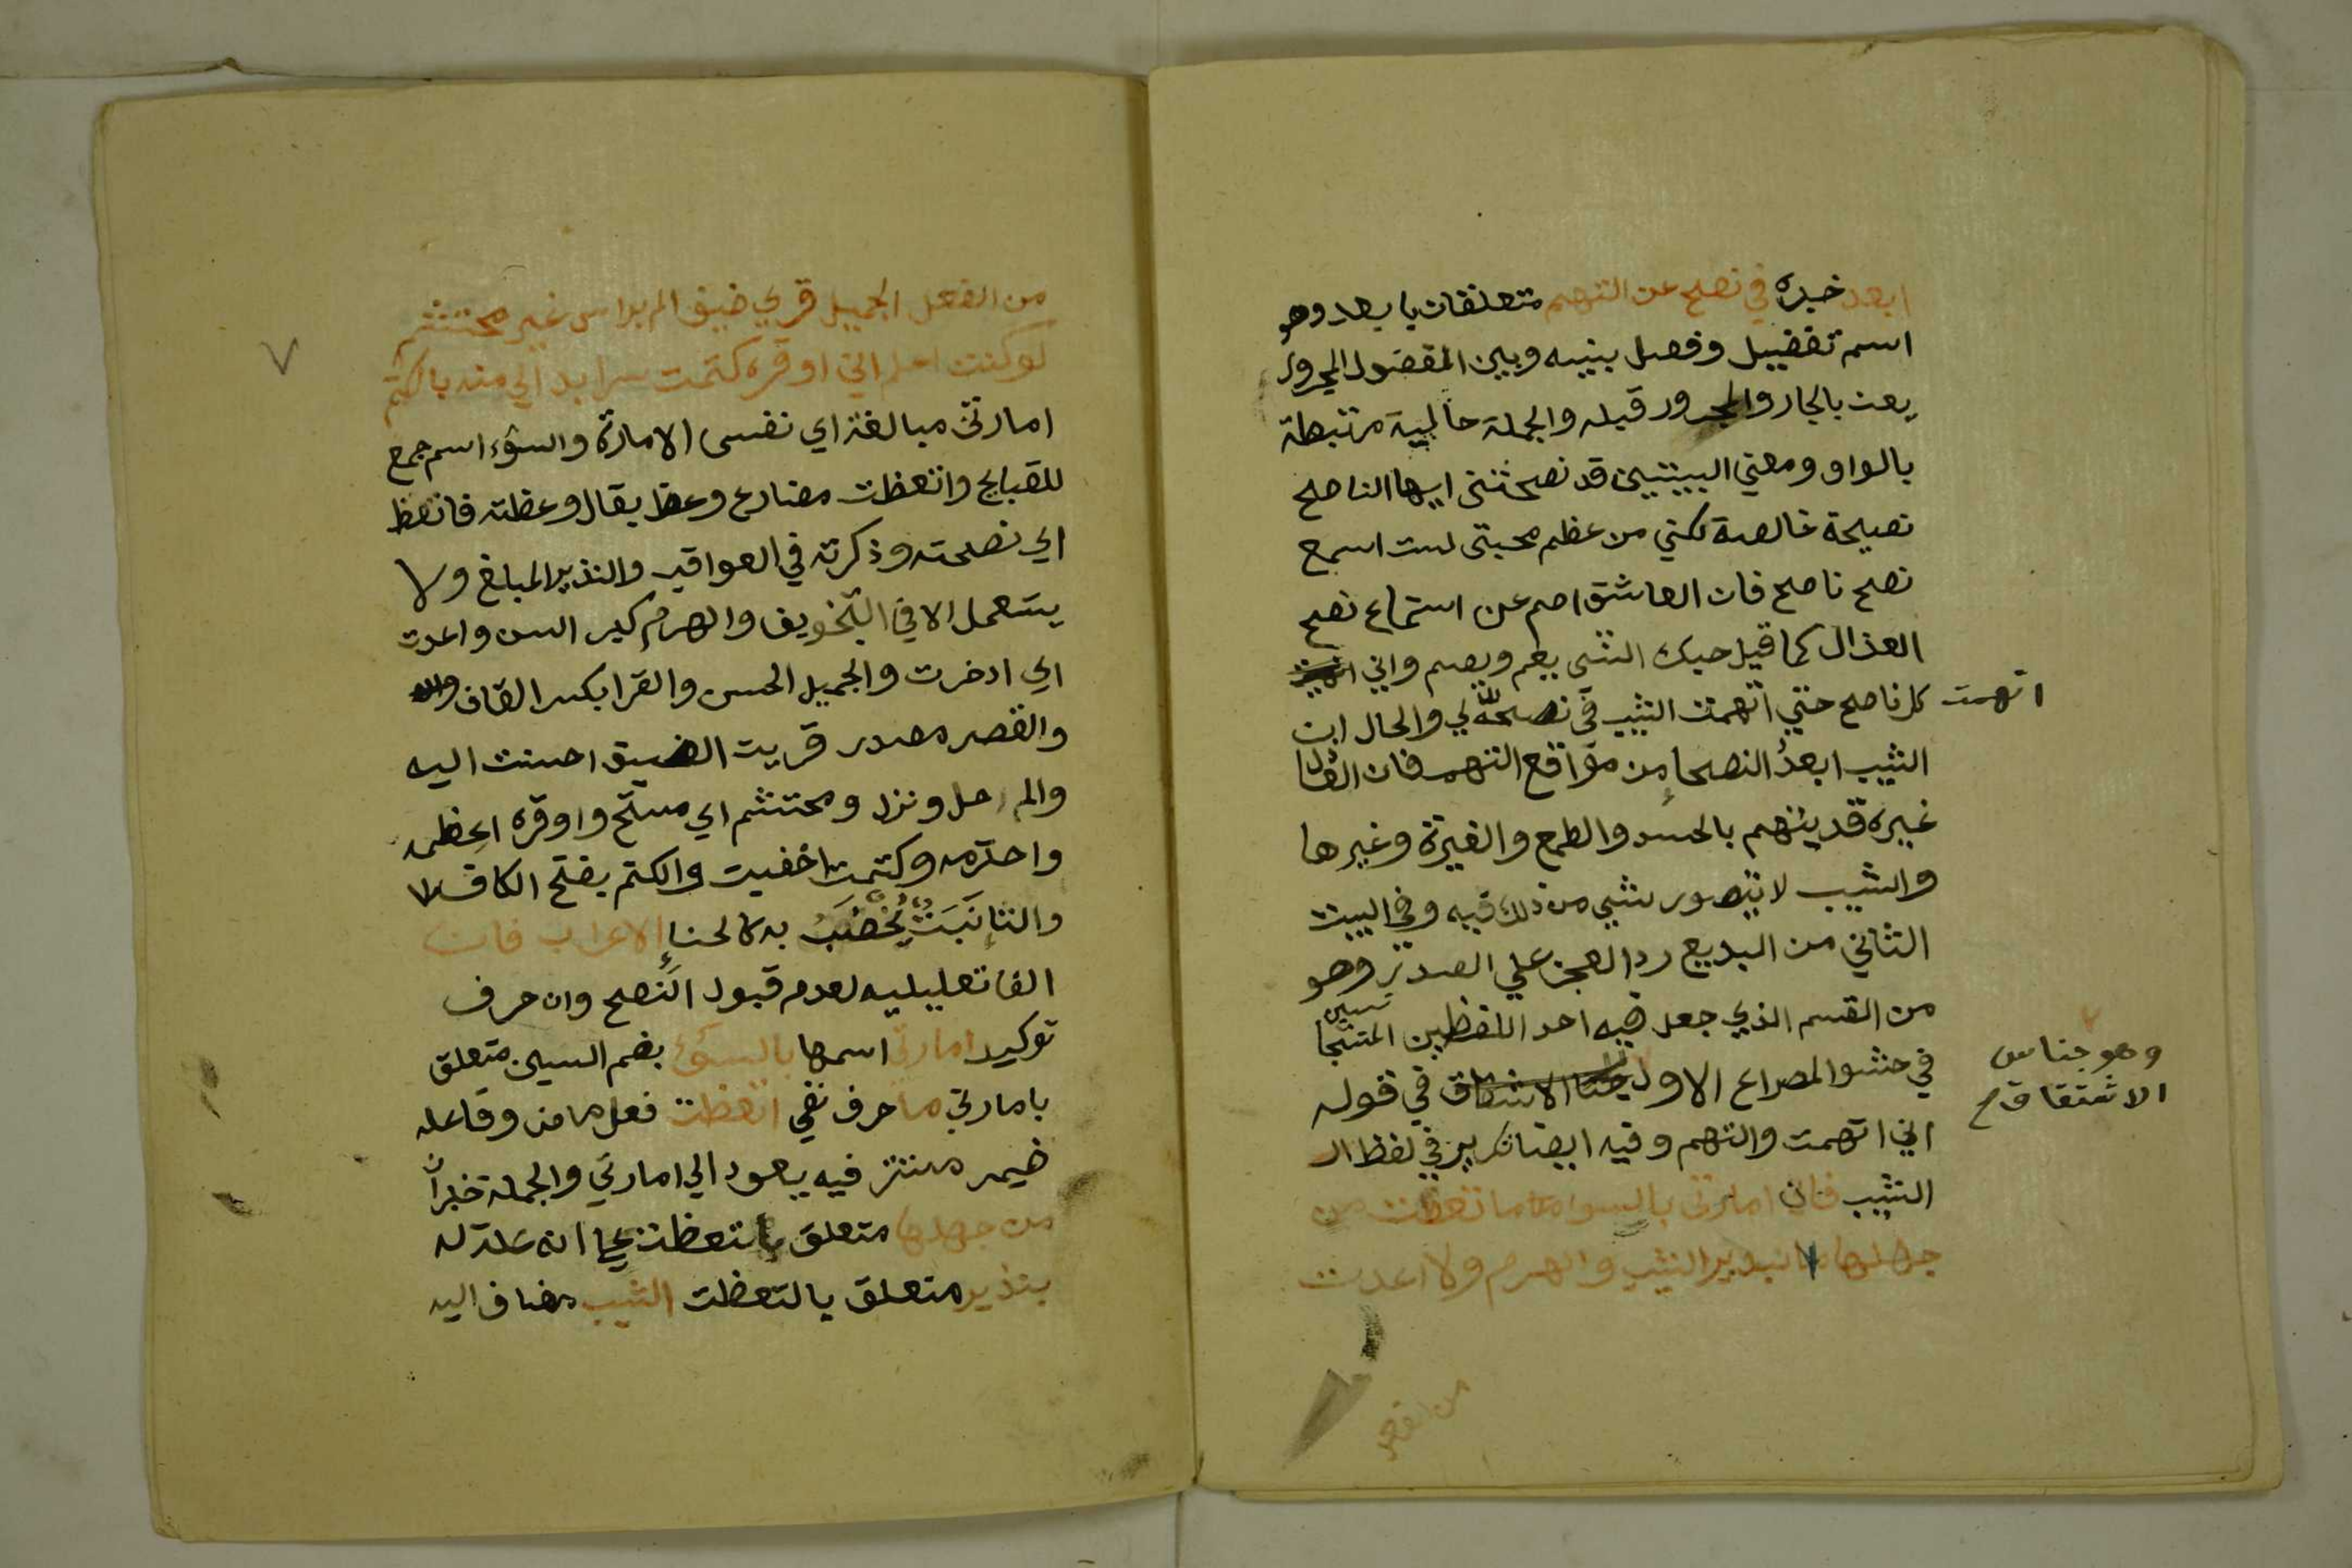 ابعد خبره في نصح عن التهم متعلقان بابعد وهو
اسم تفضيل وفصل بينه وبين المفضول المجرور
بعن بالجار والمجرور قبله والجملة حالية مرتبطة
بالواو ومعني البيتين قد نصحتني ايها الناصح
نصيحة خالصة لكني من عظم محبتي لست اسمع
نصح ناصح فان العاشق اصم عن استماع نصح
العذال كما قيل حبك الشي يعم ويصم واني
اتهمت كل ناصح حتي اتهمت الشيب في نصحه لي والحال ان
الشيب ابعد النصحا من مواقع التهم فان
غيره قد يتهم بالحسد والطمع والغيرة وغيرها
والشيب لا يتصور شي من ذلك فيه وفي البيت
الثاني من البديع رد العجز علي الصدر وهو
من القسم الذي جعل فيه احد اللفظين المتجانسين
في حشو المصراع الاول في قوله
وهو جناس
الاشتقاق
اني اتهمت والتهم وفيه ايضا تكرير في لفظ ال
الشيب فان امارتي بالسوء ما اتعظت من
جهلها بنذير الشيب والهرم ولا اعدت
من الفعل الجميل قري ضيف الم براسي غير محتشم
لو كنت اعلم اني اوقره كتمت سرا بدا لي منه بالكتم
امارتي مبالغة اي نفسي الامارة والسوء اسم جمع
للقبايح واتعظت مضارع وعظ يقال وعظته فاتعظ
اي نصحته وذكرته في العواقب والنذير المبلغ ولا
يستعمل الا في التخويف والهرم كبر السن واعدت
اي ادخرت والجميل الحسن والقرا بكسر القاف
والقصر مصدر قريت الضيف احسنت اليه
والم حل ونزل ومحتشم اي مستح واوقره اعظمه
واحترمه وكتمت اخفيت والكتم بفتح الكاف
والتا نبت يخضب به كالحنا الاعراب فان
الفا تعليليه لعدم قبول النصح وان حرف
توكيد امارتي اسمها بالسوء بضم السين متعلق
بامارتي ما حرف نفي اتعظت فعل ماض وفاعله
ضمير مستتر فيه يعود الي امارتي والجملة خبر ان
من جهلها متعلق باتعظت علي انه علة له
بنذير متعلق باتعظت الشيب مضاف اليه